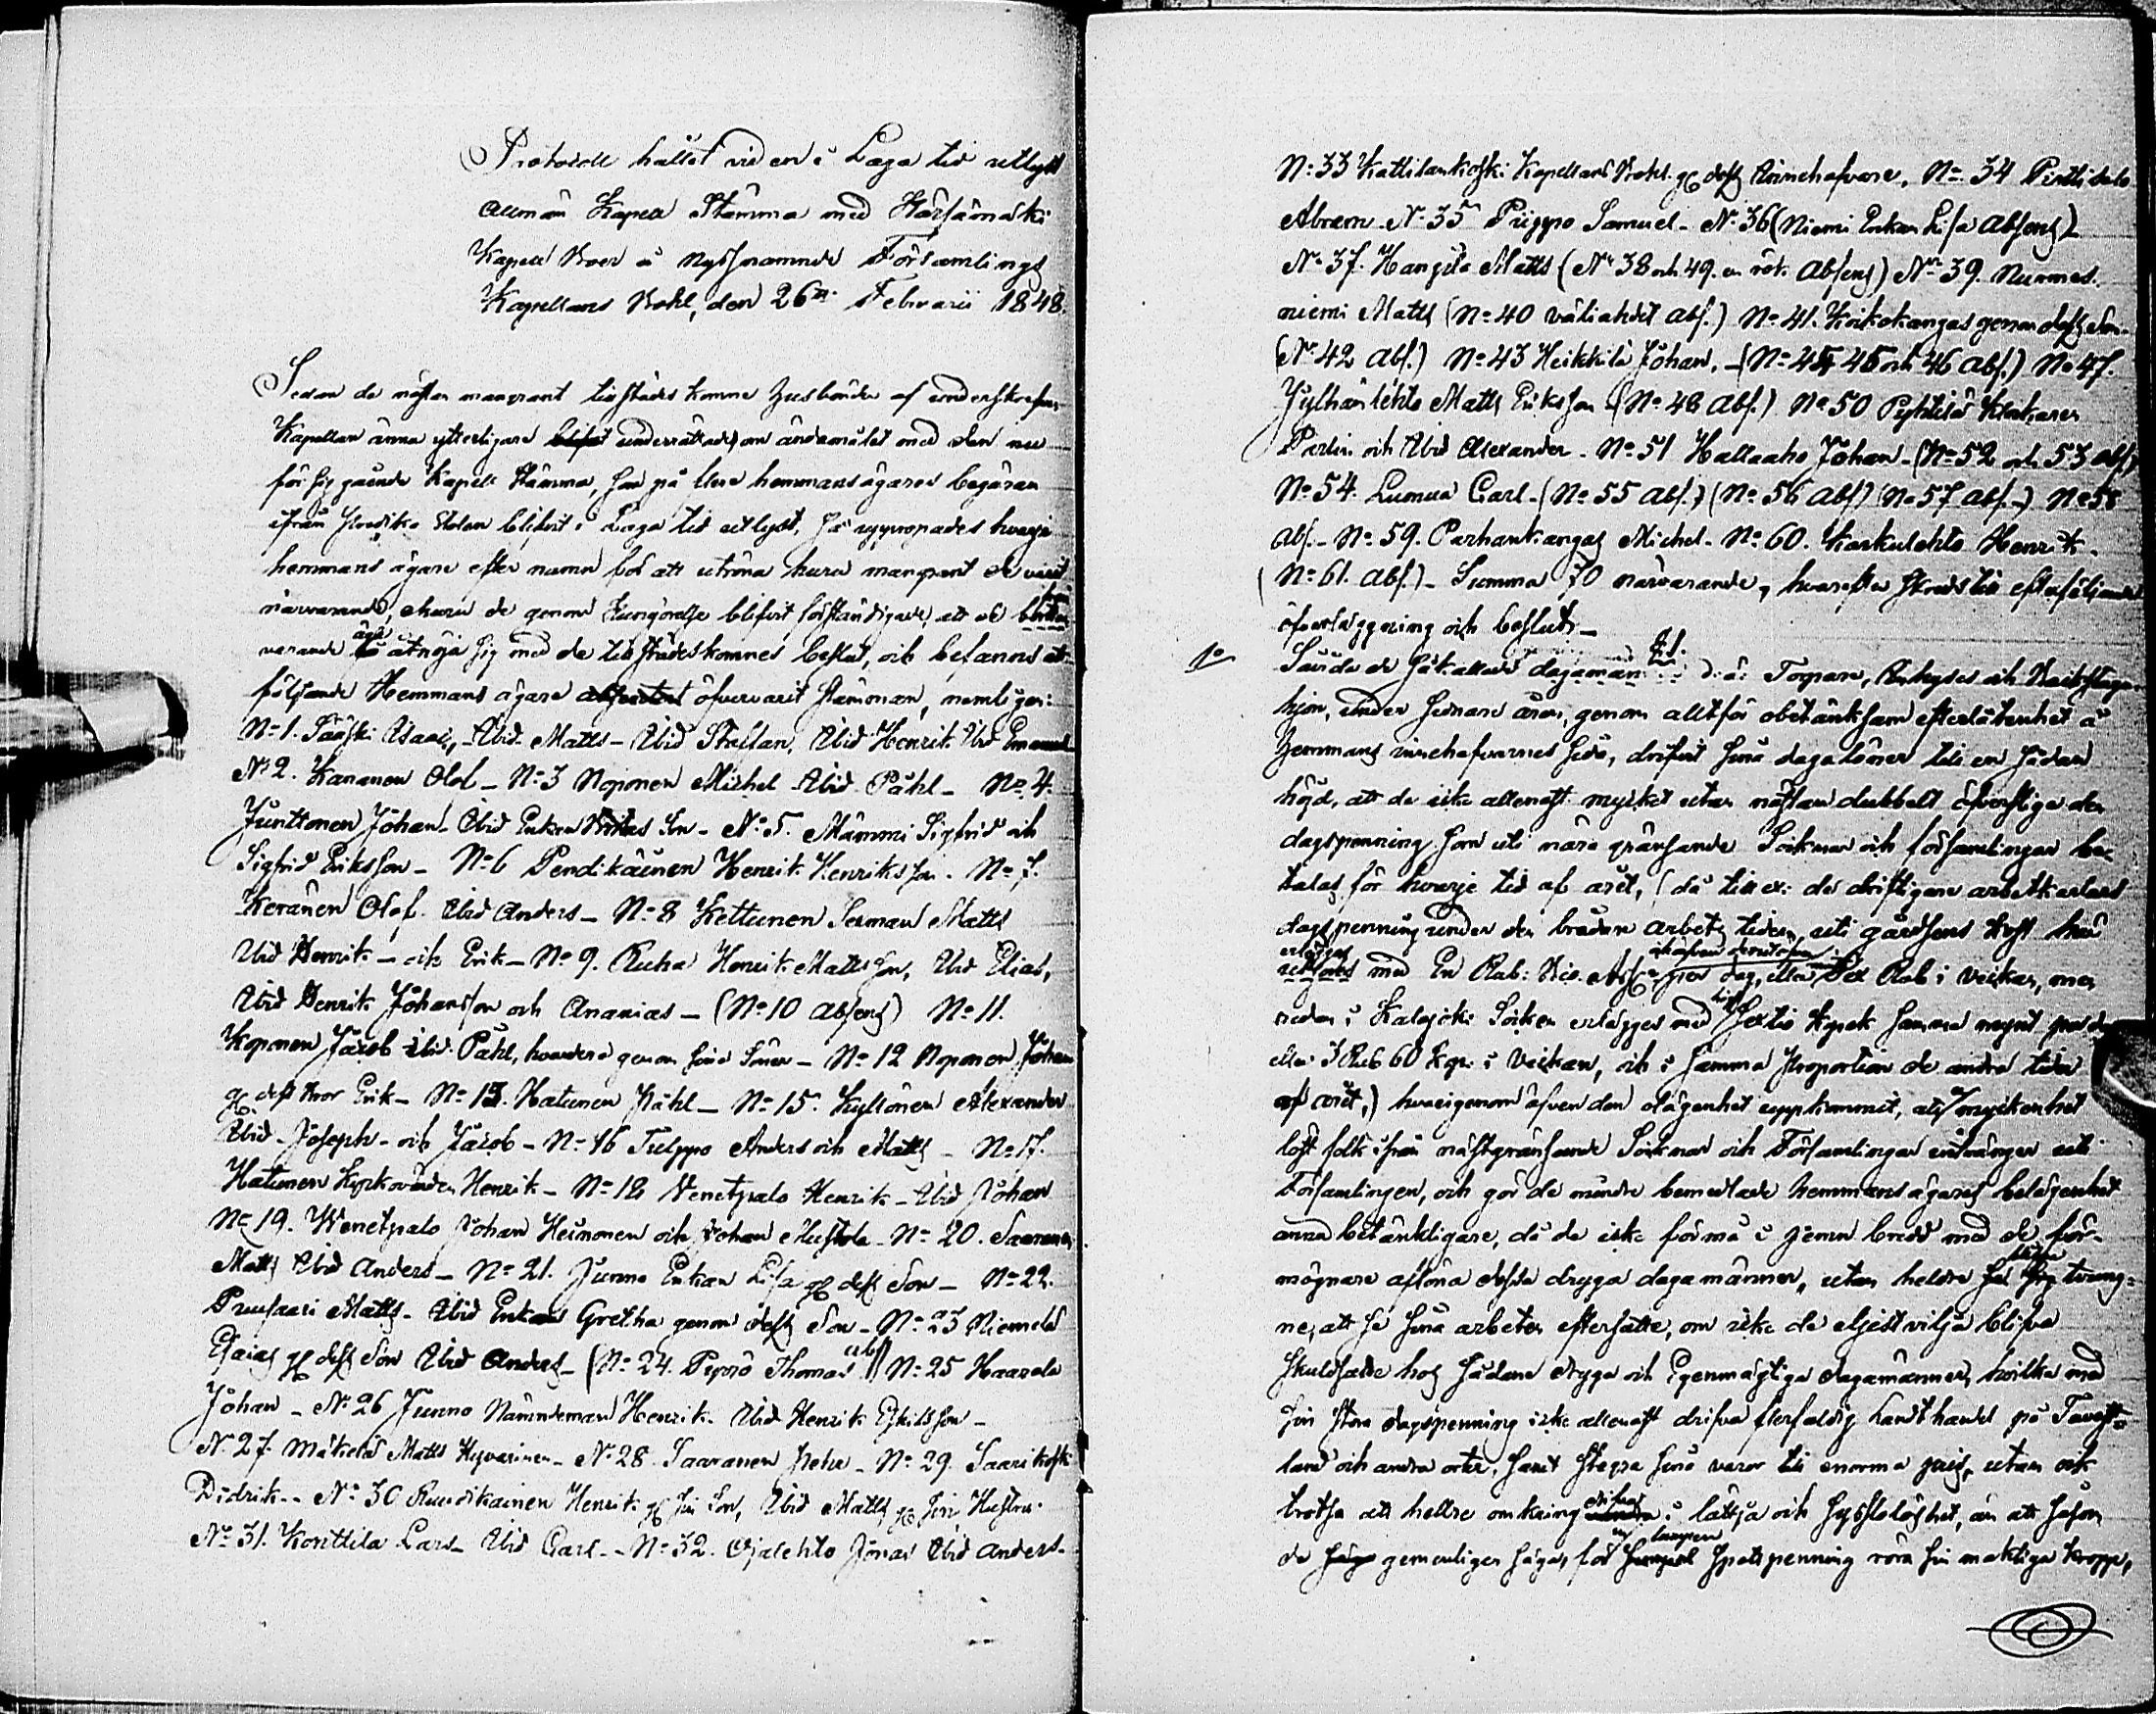 Protocoll hållet vid en i Laga tid utlyst
Allmän Kapell Stämma med Kärsämäki
Kapell Boer å nyssnämnde Församlings
Kapellans Bohl, den 26te Februarii 1848.
Sedan de nästan mangrant tillstädes komne Husbönder af underskrefne
Kapellan ännu ytterligare blifvit underrättade om ändamålet med den nu
för sig gående Kapell Stämma, som på flere hemmansägares begäran
ifrån Predike Stolen blifvit i Laga tid utlyst, så uppropades hvarje
hemmans ägare efter namn för att utröna huru mangrant de voro
närvarande, ehuru de genom Kungörelse blifvit förständigade, att de
varande äga åtnöja sig med de tillstädeskomnes beslut, och befanns att
följande Hemmans ägare öfvervarit stämman, nemligen:
No 1. Sääski Isaac, Ibid. Matts - Ibid Staffan, Ibid Henrik Ibid Emanuel
No 2. Kananen Olof - No 3 Noponen Michel Ibid. Påhl - No 4.
Junttonen Johan - Ibid Enkan Son - No 5. Mämmi Sigfrid och
Sigfrid Eriksson - No 6 Pendikäinen Henrik Henriksson. No 7.
Keränen Olof. Ibid Anders - No 8 Kettunen Matts
Ibid Henrik - och Erik - No 9. Ruha Henrik Mattsson, Ibid Elias,
Ibid Henrik Johansson och Ananias - (No 10 absens) No 11.
Koponen Jacob Ibid. Påhl, hvardera genom sine Söner - No 12 Noponen Johan
gm dess Bror Erik - No 13. Hatunen Påhl - No 15. Kyllönen Alexander
Ibid - Joseph - och Jacob - No 16 Tulppo Anders och Matts - No 17.
Hatunen Kyrkovärden Henrik - No 18 Venetpalo Henrik - Ibid Johan
No 19. Wenetpalo Johan Heinonen och Johan Mustola - No 20. Saaranen
Matts Ibid Anders - No 21. Junno Enkan Lisa gm dess Son - No 22.
Pruusaari Matts - Ibid Enkan Gretha genom dess Son - No 23 Niemelä
Esaias gm dess Son Ibid Anders - (No 24. Thomas abs) No 25 Haarala
Johan - No 26 Junno Nämndeman Henrik - Ibid Henrik Eskilsson -
No 27. Mäkelä Matts Hyvärinen - No 28. Saaranen Pehr - No 29. Saarikoski
Didrik - No 30 Henrik gm sin Son, Ibid Matts gm sin Hustru.
No 31. Konttila Lars - Ibid Carl - No 32. Ojalehto Jonas Ibid Anders -
No 33 Kattilankoski Kapellans Bohl. gm dess Innehafvare. No 34 Pirttisalo
Abram - No 35 Prippo Samuel - No 36 (Niemi Enkan Lisa absens)
No 37. Hangila Matts (No 38 och 49. en röt absens) No 39. Nurmes-
niemi Matts (No 40 väliahdet abs.) No 41. Koikokangas genom dess Son -
(No 42 abs.) No 43 Heikkilä Johan, - (No 44 45 och 46 abs.) No 47.
Jylhänlehto Matts Eriksson (No 48 abs.) No 50 Pyhtilä Klockaren
och Ibid Alexander - No 51 Hallaaho Johan - (No 52 och 53 abs.)
No 54. Lumua Carl - (No 55 abs.) (No 56 abs) (No 57 abs.-) No 58
abs. - No 59. Parhankangas Michel - No 60. Karkulehto Henrik -
(No 61. abs.) - Summa 70 närvarande, hvarefter skreds till efterföljande
öfverläggning och beslut -
1o Sände de så kallade dagsman d.ä. Torpare, Inhyses och Backstugu-
hjon, under senare åren, genom alltför obetänksam efterlåtenhet å
Hemmans innehafvarnes sida, drifvit sina dagalöner till en sådan
höjd, att de icke allenast mycket utan nästan dubbelt öfverstiga den
dagspenning som uti nära gränsande Socknar och församlingar be-
talas för hvarje tid af året, (då till ex: de driftigare arbetkarlars
dagspenning under den brådan arbets tiden, uti gårdsens kost här
erlägges med En Rub: per dag, eller Sex Rub i veckan, men
redan i Kalajoki Socken erlägges med högst Sextio kopek samma mynt per dag
eller 3 Rub 60 kop. i veckan, och i samma proportion de andra tider
af året,) hvarigenom äfven den olägenhet uppkommit, att myckenhet
löst folk ifrån nästgränsande Socknar och Församlingar inträngar uti
Församlingen, och gör de mindre bemedlade hemmansägares belägenhet
ännu betänkligare, då de icke förmå i jemn bredd med de för-
mögnare aflöna dessa dryga dagamänner, utan heldre se sig tvung-
ne, att se sina arbeten eftersatte, om icke de eljest vilja blifva
skuldsatte hos sådane dryga och Egenmägtiga dagamänner, hvilka med
sin stora dagspenning icke allenast drifva flerfaldig Landthandel på Tavast-
land och andra orter, samt stegra sina varor till enorma pris, utan ock
trotsa att hellre omkring drifva i lättja och sysslolöshet, än att såsom
de gemenligen säga, för spottpenning röra sin maktiga kropp,